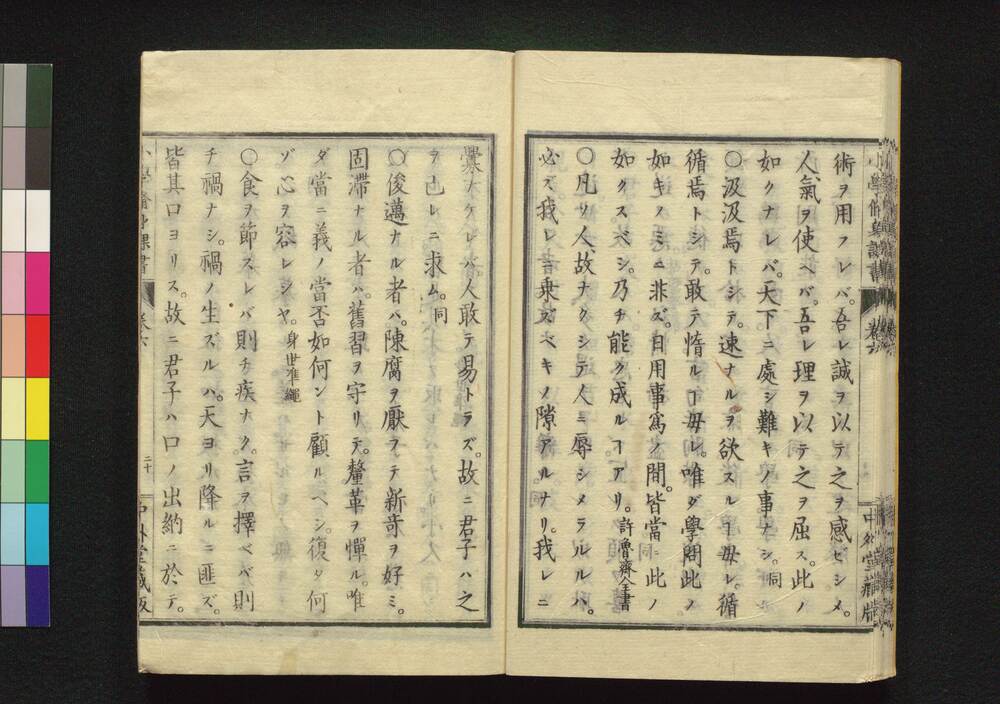 術ヲ用フレバ。吾レ誠ヲ以テ之ヲ感ゼシメ。
人氣ヲ使ヘバ。吾レ理ヲ以テ之ヲ屈ス。此ノ
如クナレバ。天下ニ處シ難キノ事ナシ。同
〇汲汲焉トシテ。速ナルヲ欲スルヿ毋レ。循
循焉トシテ。敢テ惰ルヿ毋レ。唯ダ學問此ノ
如キノミニ非ズ。日用事爲ノ間。皆當ニ此ノ
如クスベシ。乃チ能ク成ルヿアリ。許魯齋全書
〇凡ソ人。故ナクシテ人ニ辱シメラルルハ。
必ズ我レニ乗ズベキノ隙アルナリ。我レニ
小學脩身課書 卷六 中外堂藏版
釁ナケレバ。人敢テ易トラズ。故ニ君子ハ之
ヲ已レニ求ム。同
〇俊邁ナル者ハ。陳腐ヲ厭フテ新奇ヲ好ミ。
固滯ナル者ハ。舊習ヲ守リテ。釐革ヲ憚ル。唯
ダ當ニ義ノ當否如何ント顧ルヘシ。復タ何
ゾ心ヲ容レシヤ。身世準繩
〇食ヲ節スレバ則チ疾ナク。言ヲ擇ベバ則
チ禍ナシ。禍ノ生ズルハ。天ヨリ降ルニ匪ズ。
皆其口ヨリス。故ニ君子ハ口ノ出納ニ於テ。
小學脩身課書 卷六 二十 中外堂藏版